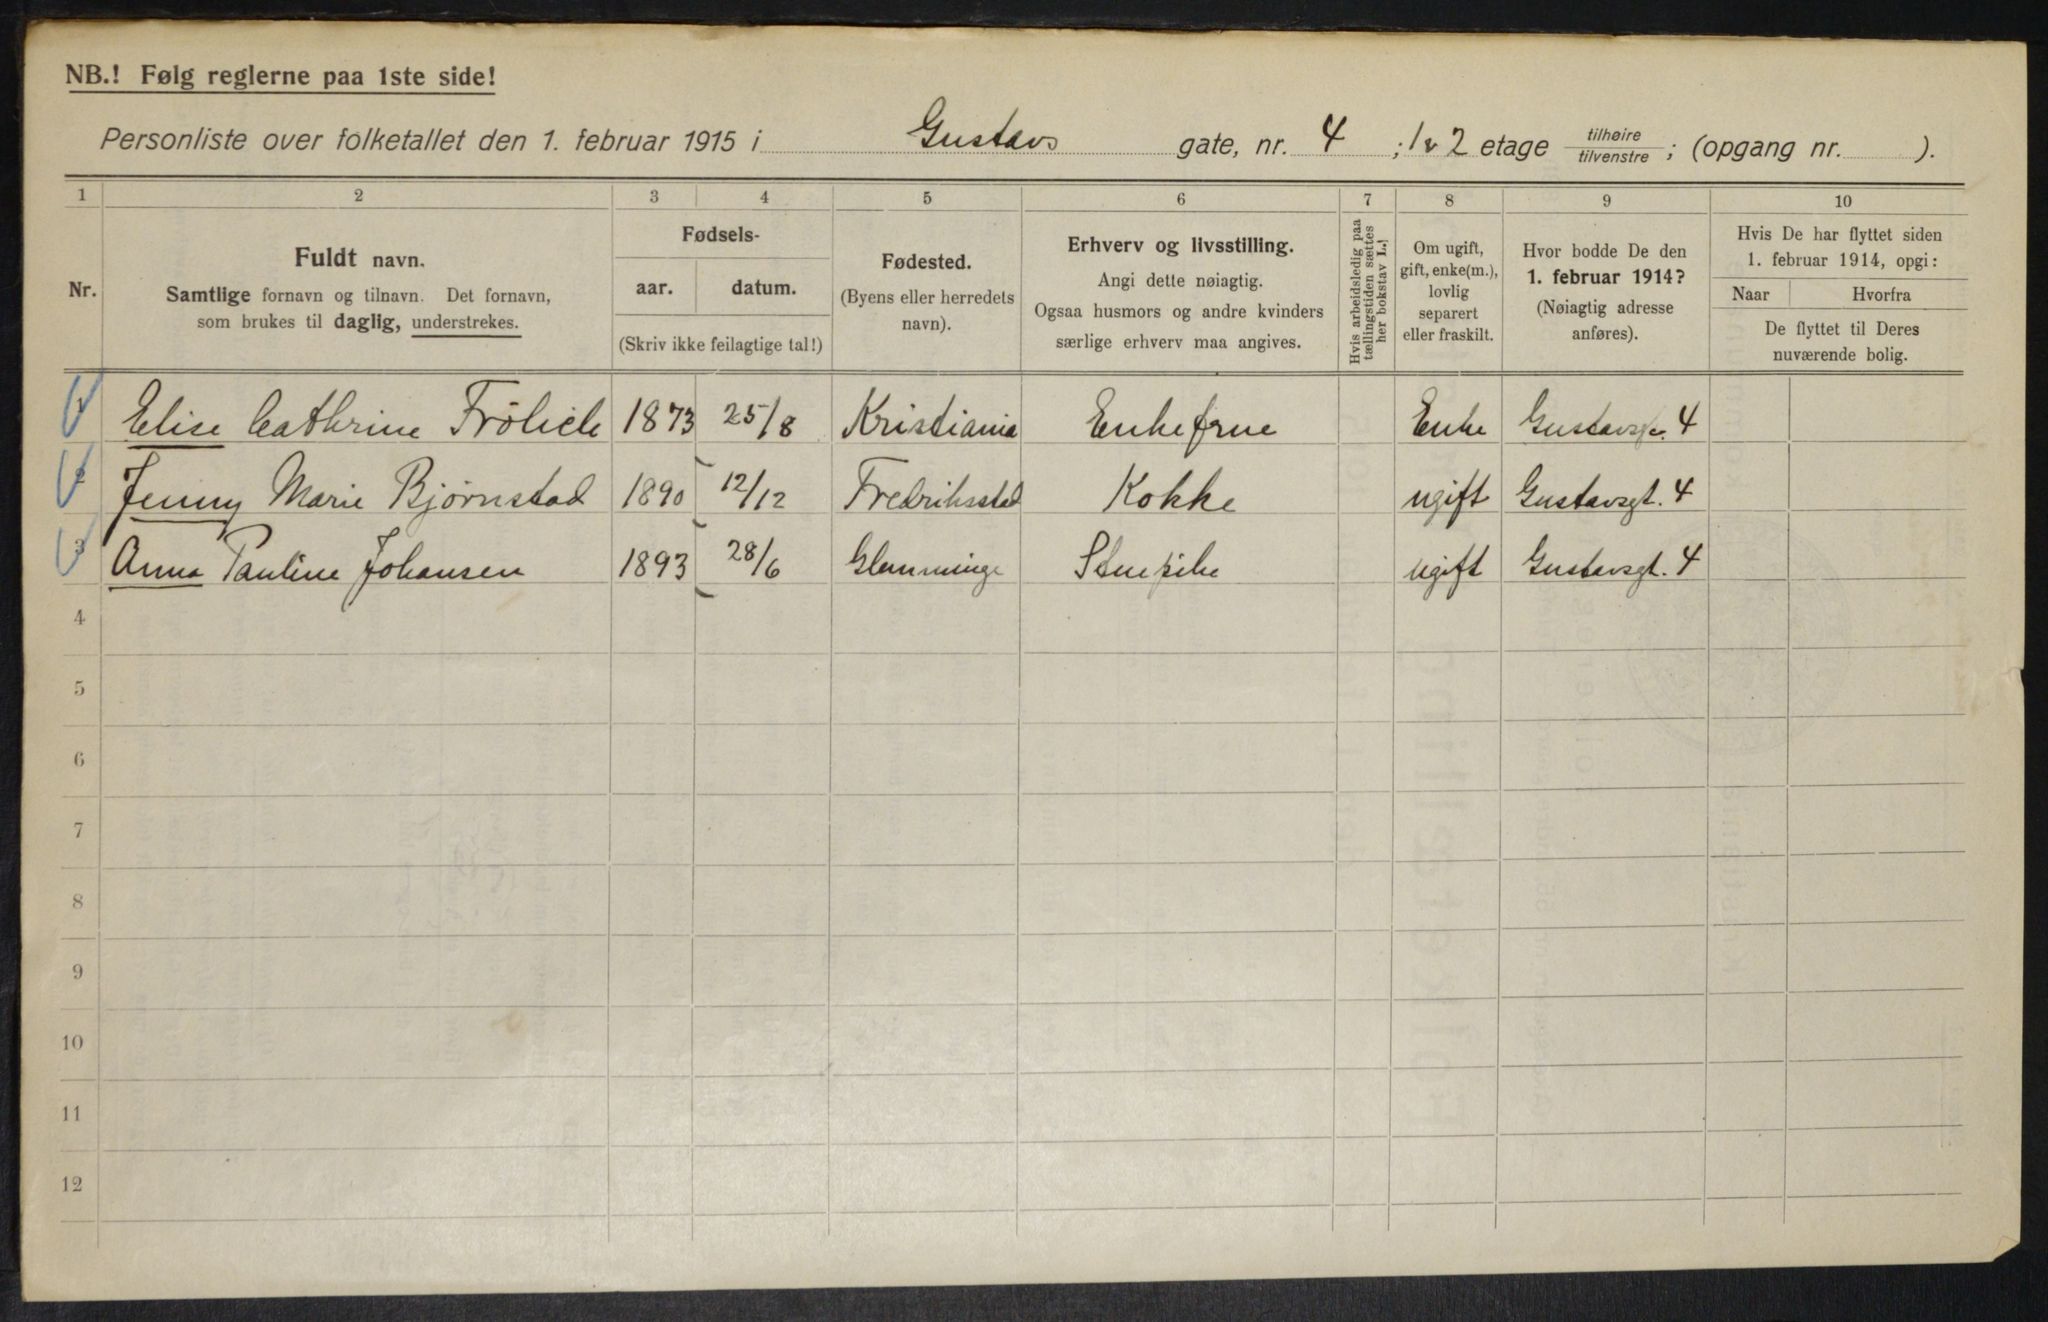 NB.! Følg reglerne paa 1ste side!
Personliste over folketallet den 1. februar 1915 i Gustavs gate, nr. 4 ; 1 & 2 etage tilhøire tilvenstre ; (opgang nr. ).
1 2 3 4 5 6 7 8 9 10
Nr.
Fuldt navn.
Samtlige fornavn og tilnavn. Det fornavn,
som brukes til daglig, understrekes.
Fødsels-
aar. datum.
(Skriv ikke feilagtige tal!)
Fødested.
(Byens eller herredets
navn).
Erhverv og livsstilling.
Angi dette nøiagtig.
Ogsaa husmors og andre kvinders
særlige erhverv maa angives.
Hvis arbeidsledig paa
tællingstiden sættes
her bokstav L.)
Om ugift,
gift, enke(m.),
lovlig
separert
eller fraskilt.
Hvor bodde De den
1. februar 1914?
(Nøiagtig adresse
anføres).
Hvis De har flyttet siden
1. februar 1914, opgi:
Naar Hvorfra
De flyttet til Deres
nuværende bolig.
1 Elise Cathrine Frölich 1873 25/8 Kristiania Enkefrue Enke Gustavsgt. 4
2 Jenny Marie Bjørnstad 1890 12/12 Fredriksstad Kokke ugift Gustavsgt. 4
3 Anna Pauline Johansen 1893 28/6 Glemminge Stuepike ugift Gustavsgt. 4
4
5
6
7
8
9
10
11
12